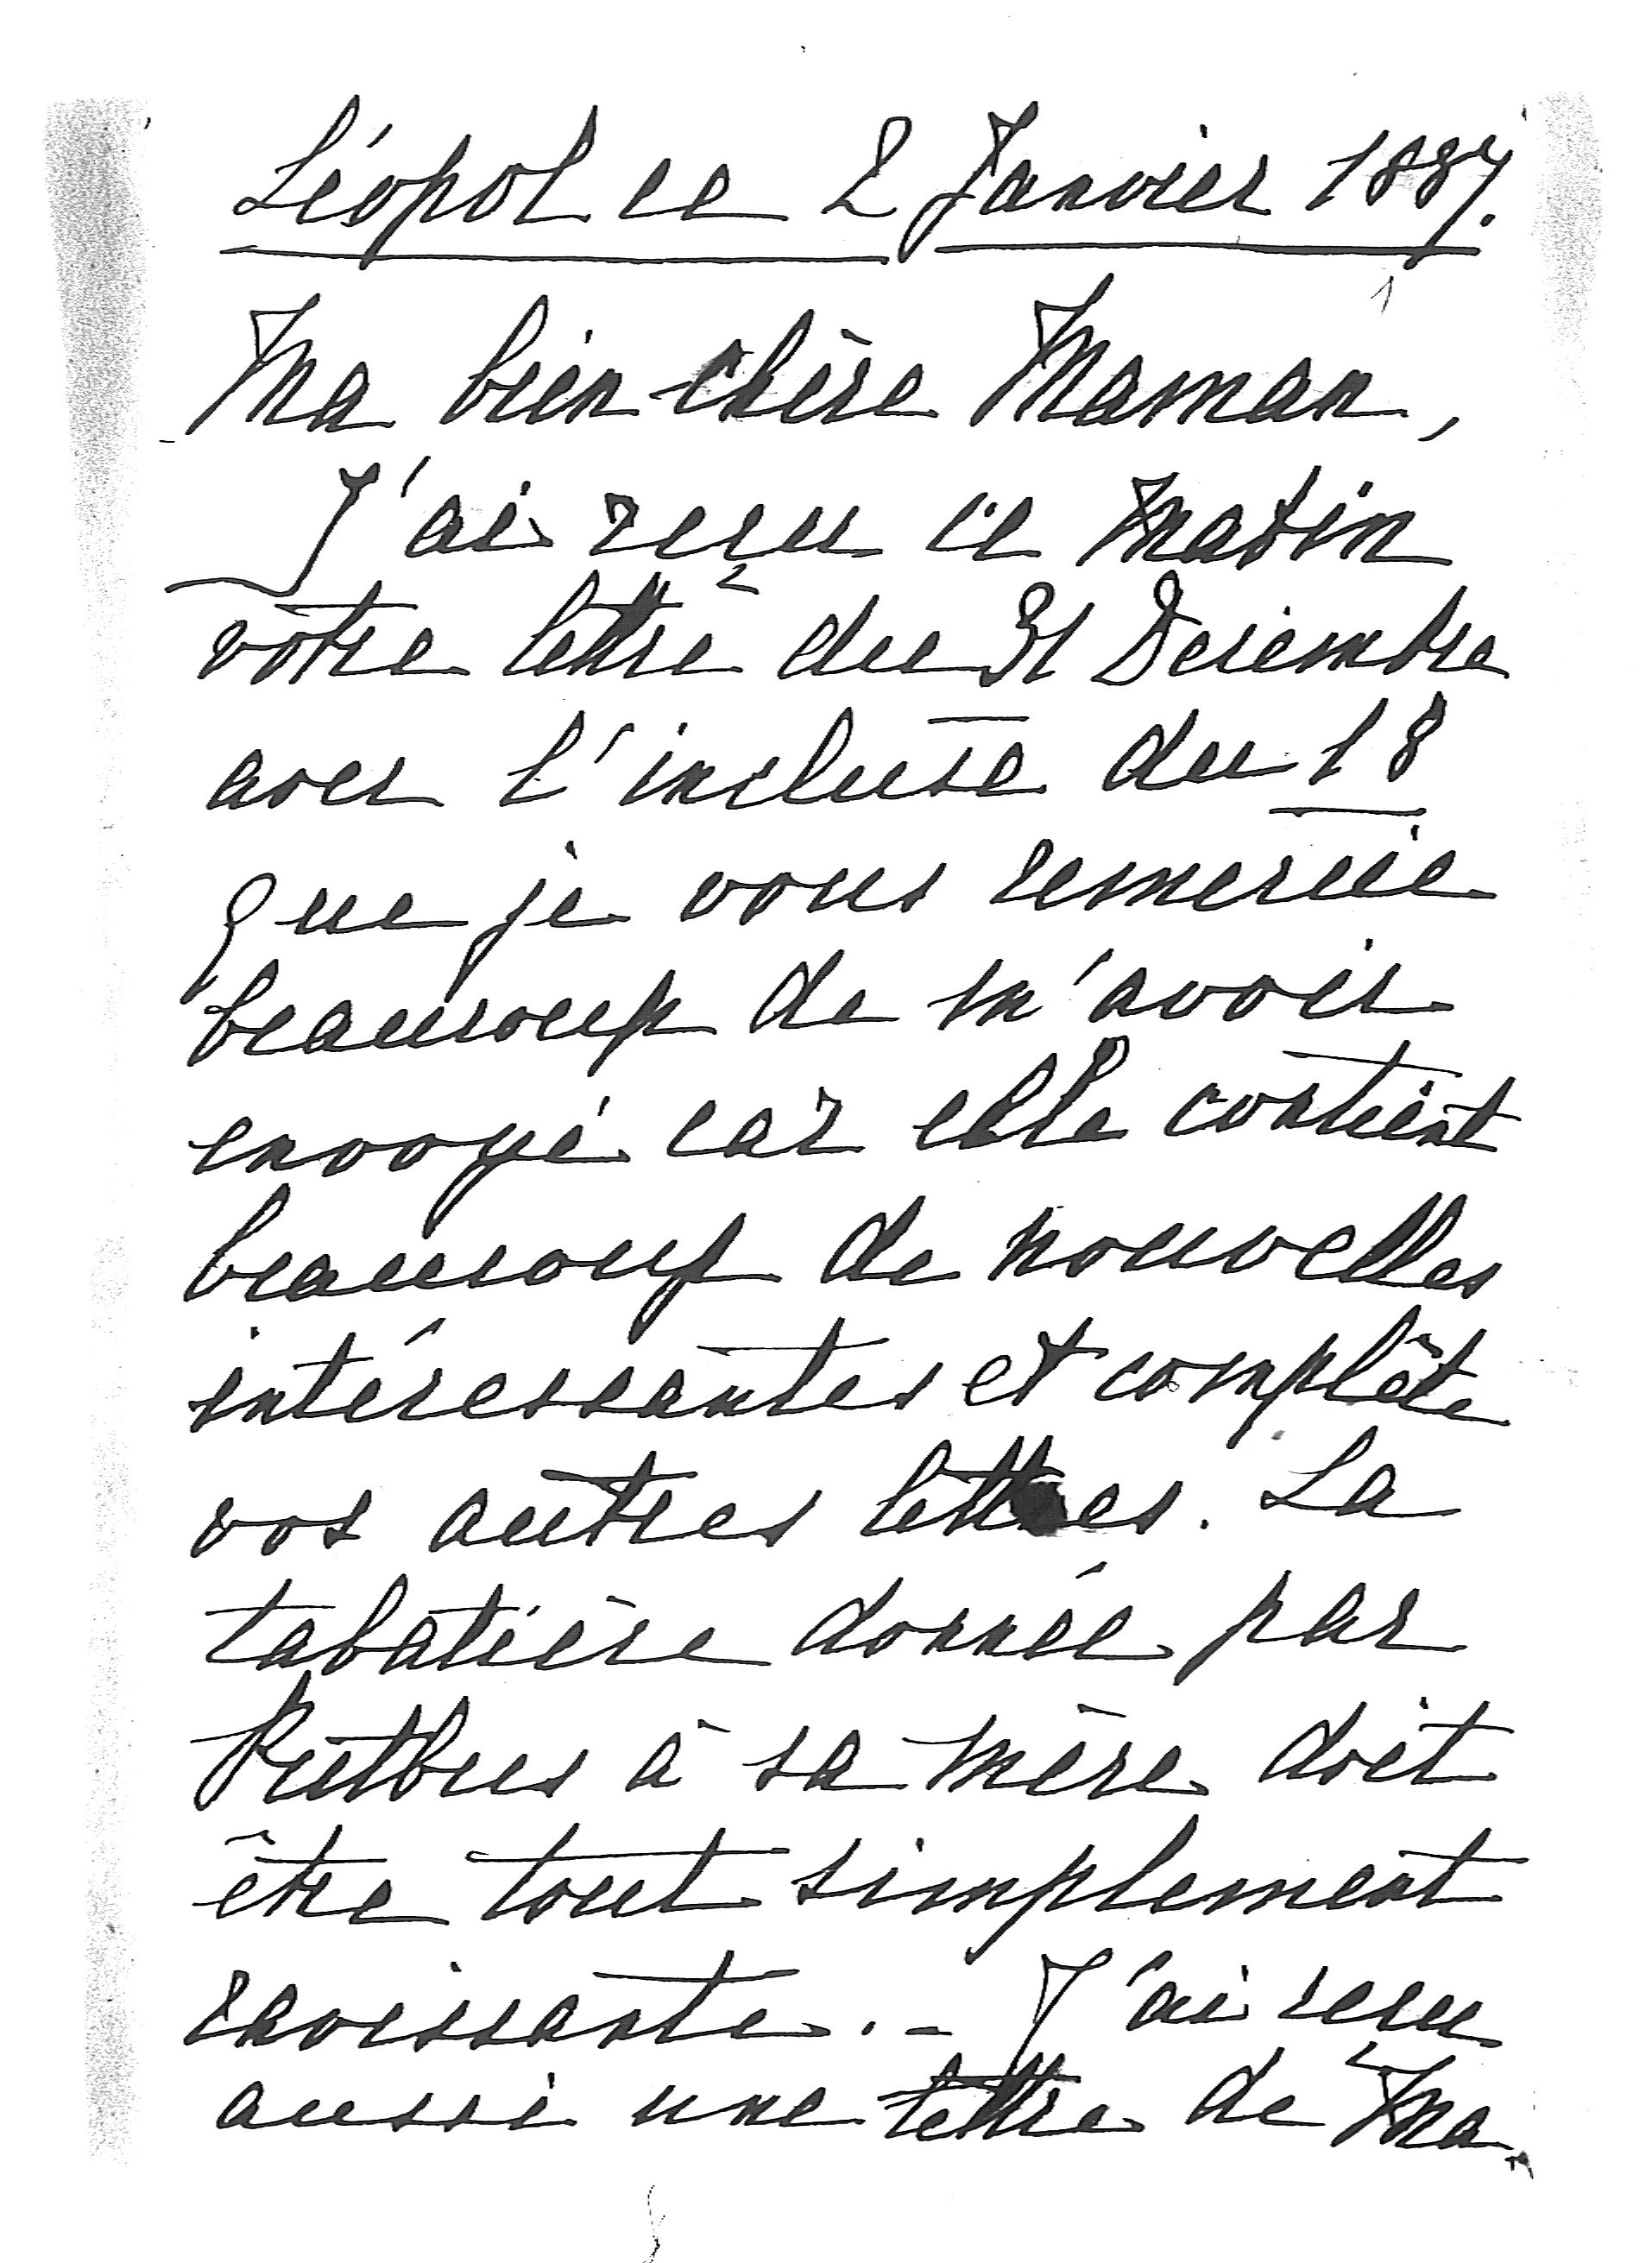 Léopol ce 2 Janvier 1887.
Ma bien chère Maman,
J'ai reçu ce matin
votre lettre du 31 Decembre
avec l'incluse du 18
que je vous remercie
beaucoup de m'avoir
envoyé car elle contient
beaucoup de nouvelles
intéressantes et complète
vos autres lettres. La
tabatière donnée par
Putbus à sa mère doit
être tout simplement
ravissante. - J'ai reçu
aussi une lettre de Ma